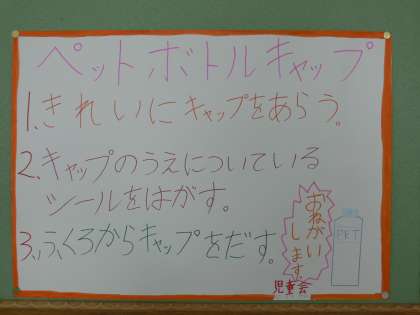 ペットボトルキャップ
1.きれいにキャップをあらう。
2.キャップのうえについている
シールをはがす。
3.ふくろからキャップをだす。
おねがい
します
PET
児童会